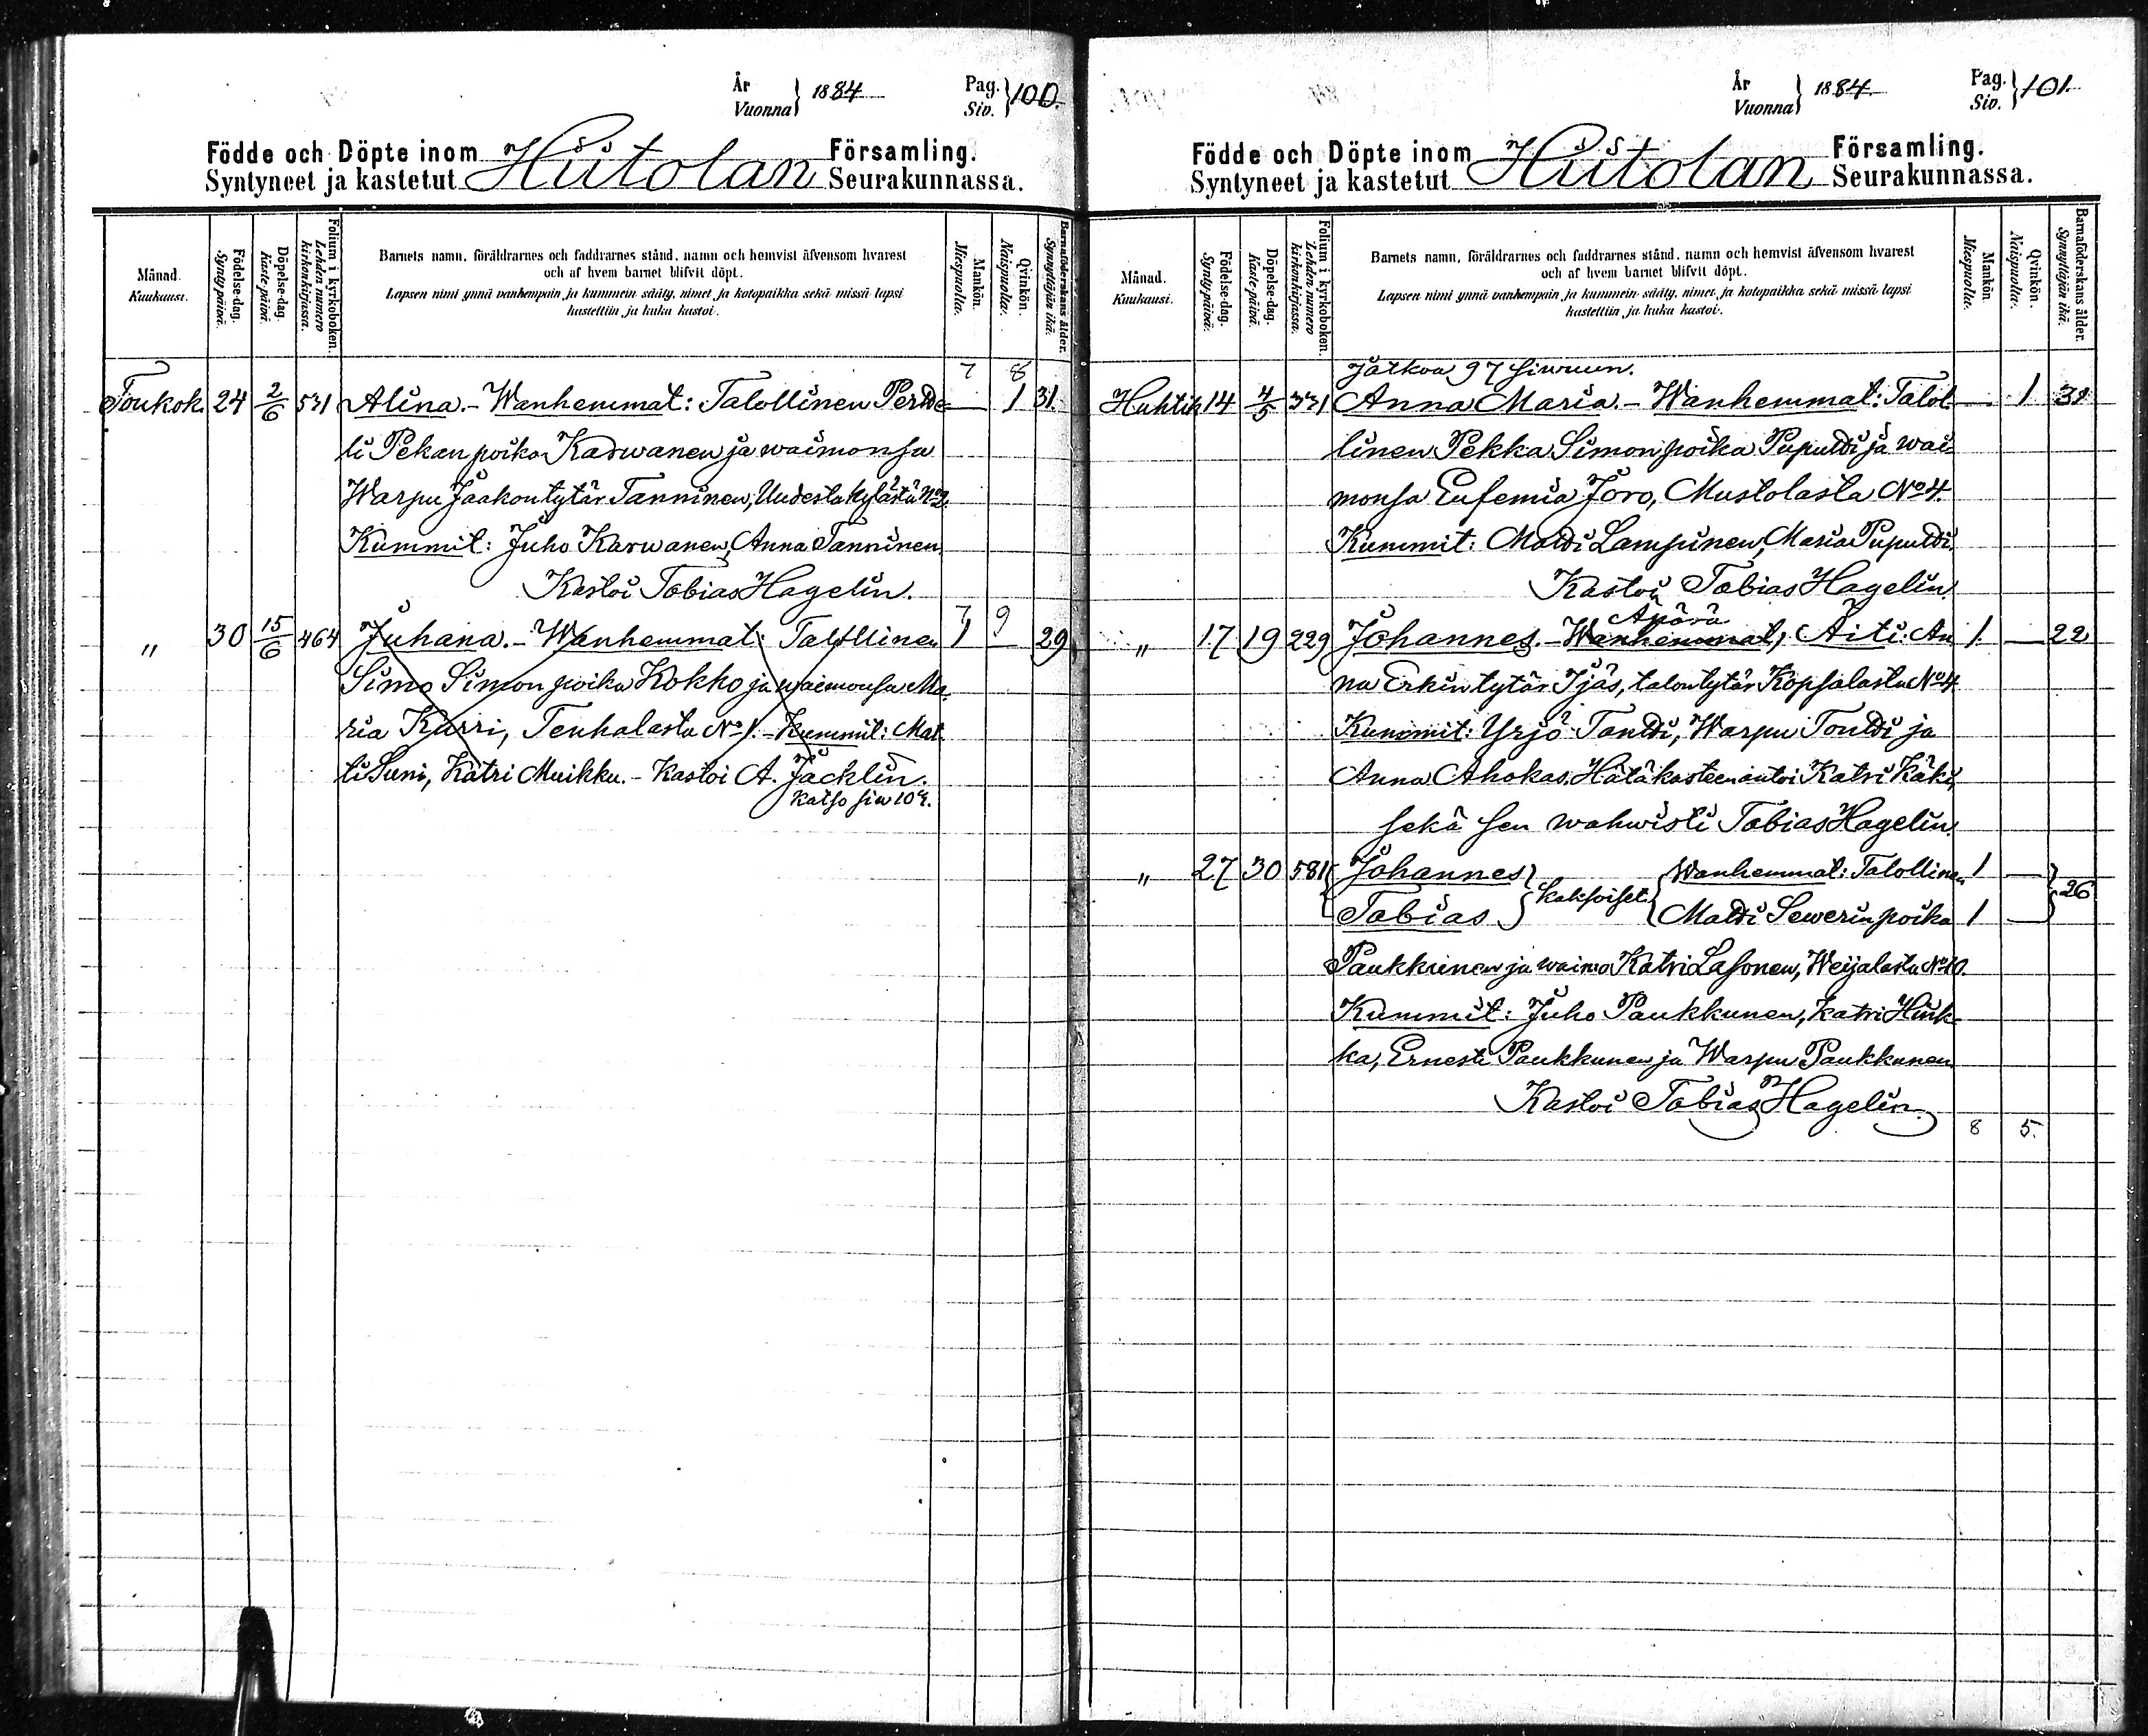 År
Vuonna } 1884
Pag.
Siv. } 100.
Födde och Döpte inom Hiitolan Församling.
Syntyneet ja kastetut Seurakunnassa.
Månad.
Kuukausi.
Födelse-dag.
Synty-päivä.
Döpelse-dag.
Kaste-päivä.
Folium i kyrkoboken.
Lehden numero kirkonkirjassa.
Barnets namn, föräldrarnes och faddrarnes stånd, namn och hemvist äfvensom hvarest
och af hvem barnet blifvit döpt.
Lapsen nimi ynnä vanhempain ja kummein sääty, nimet ja kotopaikka sekä missä lapsi
kastettiin ja kuka kastoi.
Mankön.
Miespuolta.
Qvinkön.
Naispuolta.
Barnaföderskans ålder.
Synnyttäjän ikä.
7 8
Toukok. 24 2/6 531 Alina. - Wanhemmat: Talollinen Pertte- — 1 31.
li Pekanpoika Karwanen ja waimonsa
Warpu Jaakontytär Tanninen, Uudestakylästä No 2.
Kummit: Juho Karwanen, Anna Tanninen
Kastoi Tobias Hagelin.
7 9
" 30 15/6 464 Juhana. - Wanhemmat: Talollinen 1 — 29
Simo Simonpoika Kokko ja waimonsa Ma-
ria Kurri, Tenhalasta No 1. - Kummit: Mat-
ti Suni, Katri Muikku. - Kastoi A. Jäcklin.
katso siw 104.
År
Vuonna } 1884.
Pag.
Siv. } 101.
Födde och Döpte inom Hiitolan Församling.
Syntyneet ja kastetut Seurakunnassa.
Månad.
Kuukausi.
Födelse-dag.
Synty-päivä.
Döpelse-dag.
Kaste-päivä.
Folium i kyrkoboken.
Lehden numero kirkonkirjassa.
Barnets namn, föräldrarnes och faddrarnes stånd, namn och hemvist äfvensom hvarest
och af hvem barnet blifvit döpt.
Lapsen nimi ynnä vanhempain ja kummein sääty, nimet ja kotopaikka sekä missä lapsi
kastettiin ja kuka kastoi.
Mankön.
Miespuolta.
Qvinkön.
Naispuolta.
Barnaföderskans ålder.
Synnyttäjän ikä.
Jatkoa 97 siwuun.
Huhtik. 14 4/5 331 Anna Maria. - Wanhemmat: Talol- — 1
linen Pekka Simonpoika Puputti ja wai-
monsa Eufemia Joro, Mustolasta No 4.
Kummit: Matti Lampinen, Maria Puputti.
Kastoi Tobias Hagelin.
Äpärä
" 17 19 229 Johannes. - Wanhemmat, Äiti: An- 1. — 22
na Erkintytär Ijäs, talontytär Kopsalasta No 4
Kummit: Yrjö Tontti, Warpu Tontti ja
Anna Ahokas. Hätäkasteen antoi Katri Käki,
sekä sen wahwisti Tobias Hagelin.
" 27 30 581 { Johannes } kaksoiset. { Wanhemmat: Talollinen 1 — } 26
Tobias Matti Sewerinpoika 1 —
Paukkunen ja waimo Katri Lasonen, Weijalasta No 10.
Kummit: Juho Paukkunen, Katri Hink-
ka, Ernesti Paukkunen ja Warpu Paukkunen
Kastoi Tobias Hagelin.
8 5.